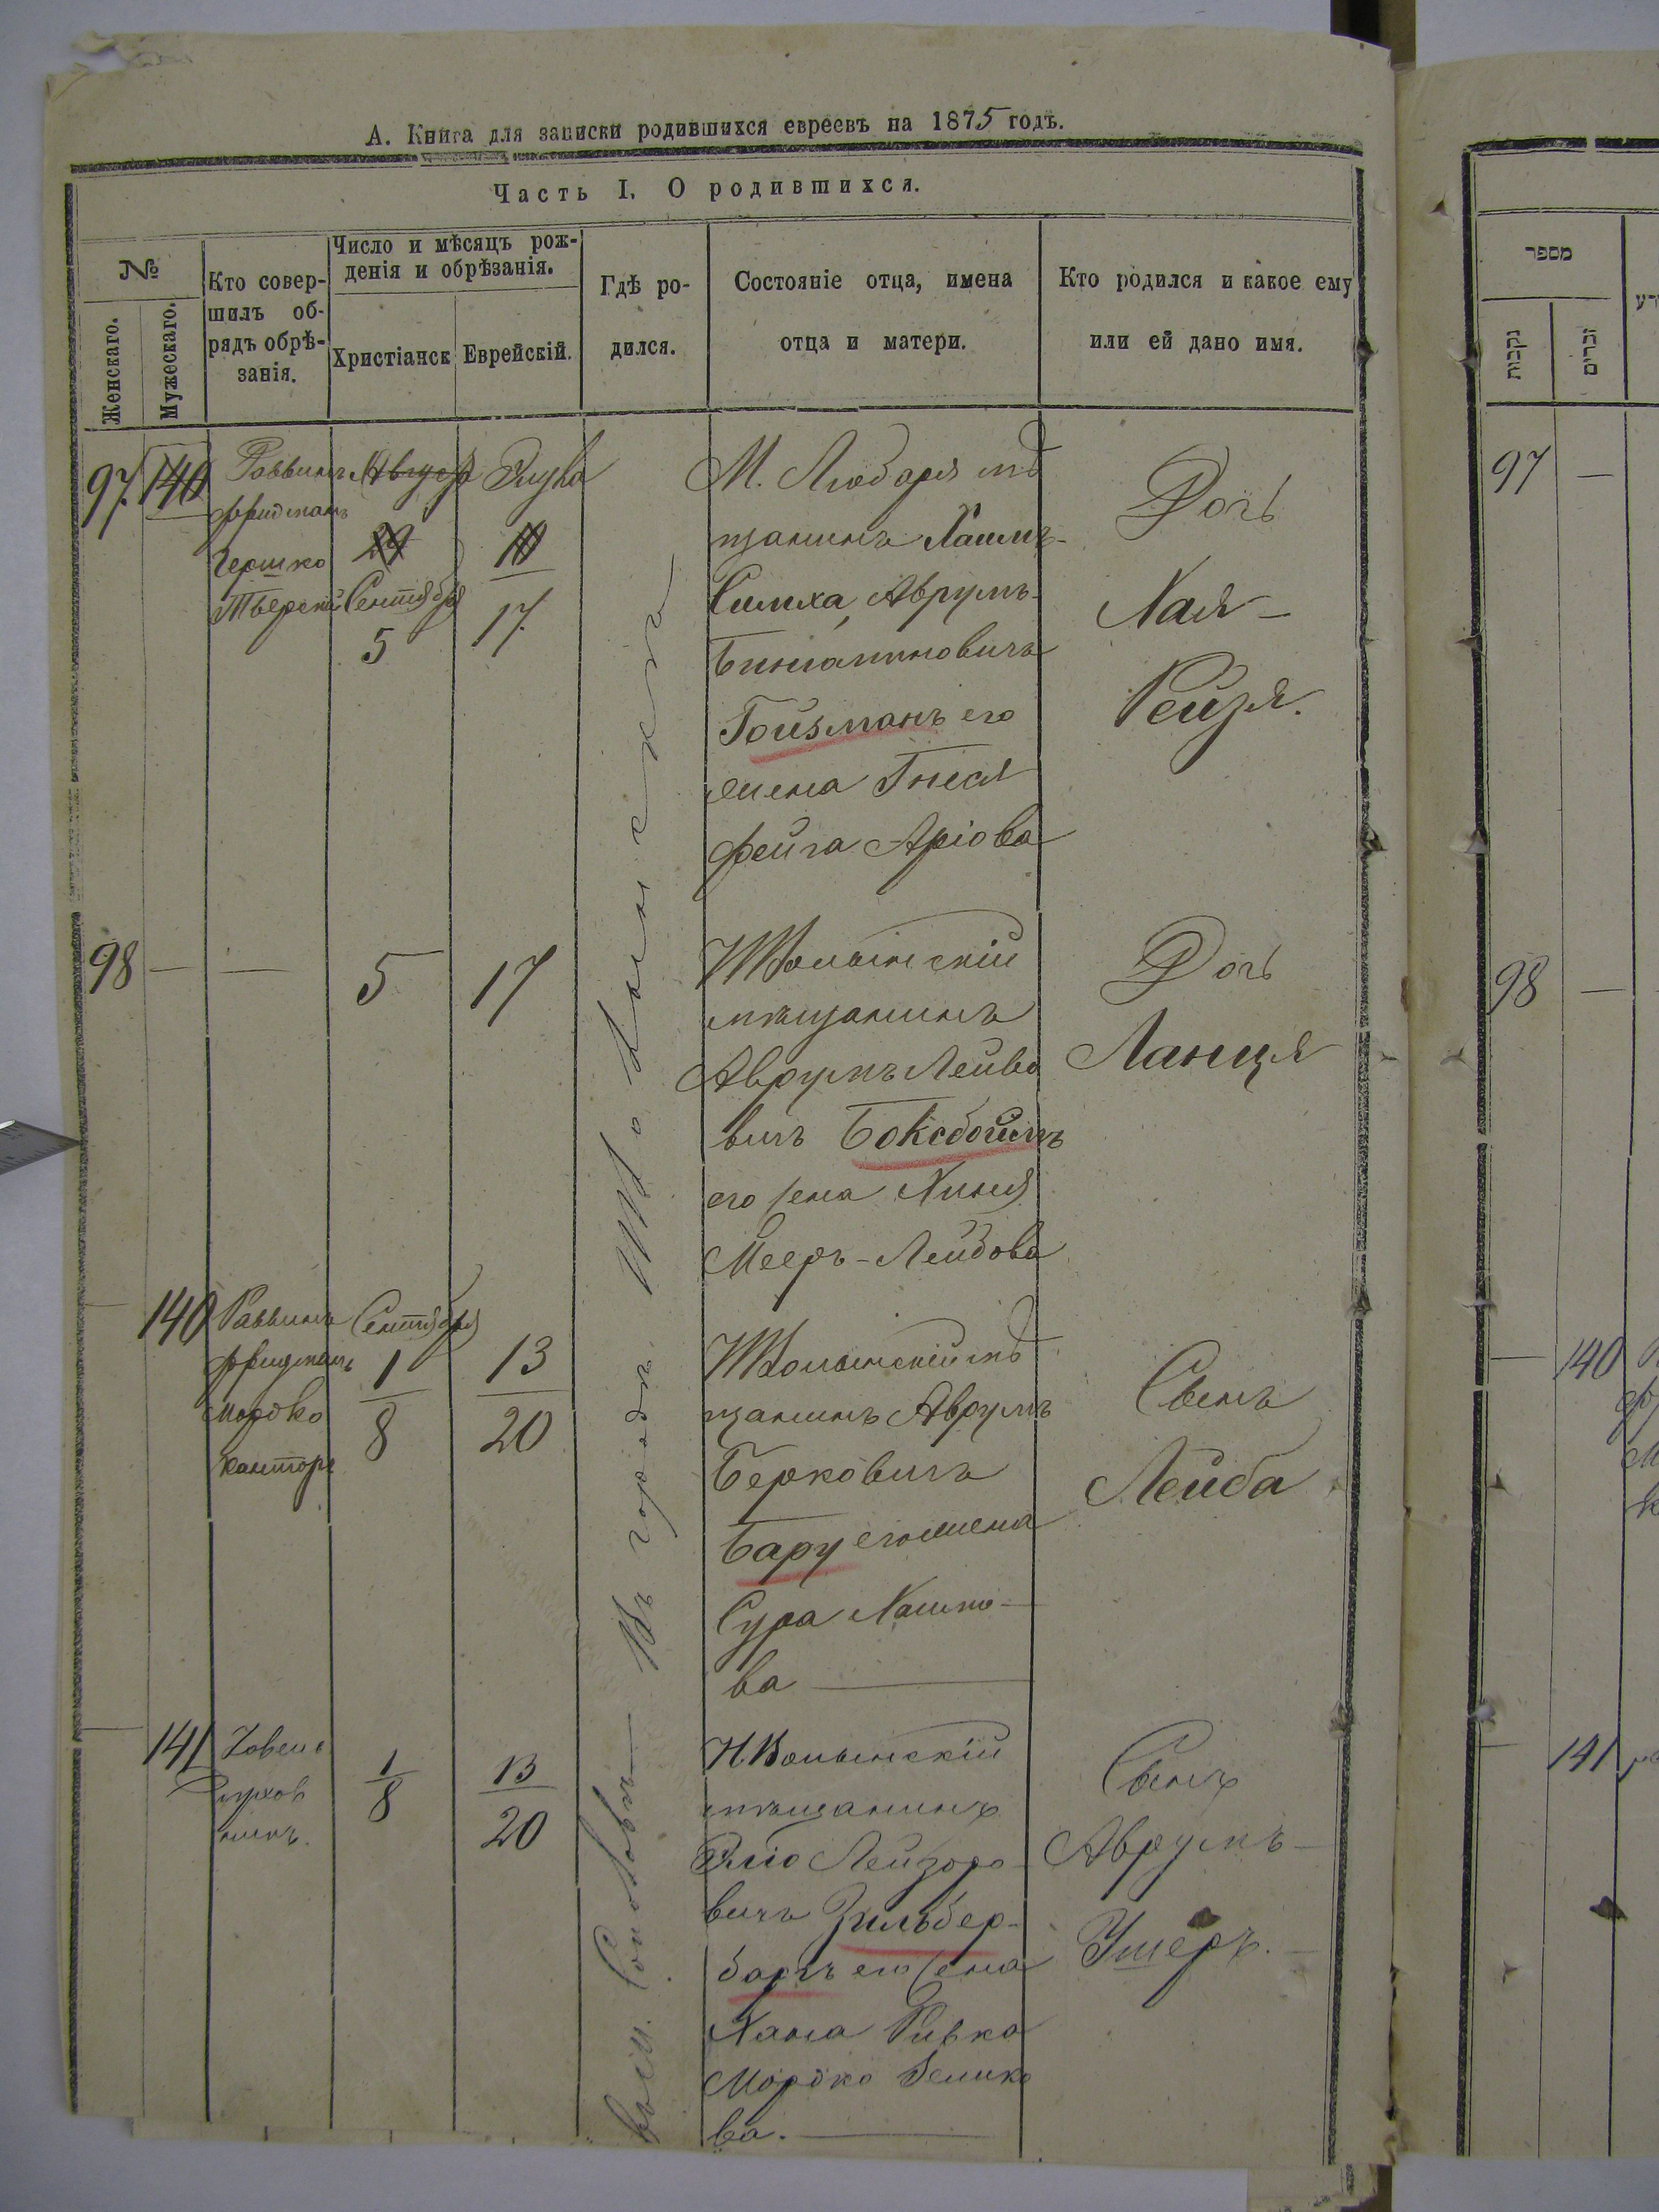 А. Книга для записки родившихся евреевъ на 1875 годъ.
Часть I. О родившихся.
№
Женскаго.
Мужескаго.
Кто совер-
шилъ об-
рядъ обрѣ-
занія.
Число и мѣсяцъ рож-
денія и обрѣзанія.
Христіанск
Еврейскій.
Гдѣ ро-
дился.
Состояніе отца, имена
отца и матери.
Кто родился и какое ему
или ей дано имя.
97.
140
Раввинъ
Фридманъ
Гершко
Тверскій
Августа
29
Сентября
5
Элула
10
17.
М. Любаря мѣ
щанинъ Хаимъ-
Симха, Аврумъ-
Биніаминовичъ
Гойзманъ его
жена Гнеся
Фейга Аріова
Дочь
Хая-
Рейзя.
98
5
17
НВолынскій
мѣщанинъ
Аврумъ Лейбо
вичъ Боксбоймъ
его жена Хиня
Мееръ-Лейбова
Дочь
Ланця
140
Раввинъ
Фридманъ
Мордко
Канторъ
Сентября
1
8
13
20
НВолынскій мѣ
щанинъ Аврумъ
Берковичъ
Бару его жена
Сура Хаимо-
ва
Сынъ
Лейба
141
1
8
13
20
НВолынскій
мѣщанинъ
Эліо Лейзоро-
вичъ Зильбер-
баргъ его жена
Хана Ривка
Мордко Зелико
ва.
Сынъ
Аврумъ-
Ушеръ.
Въ городѣ НВолынскѣ
מספר
נקבות
זכרים
97
98
140
141